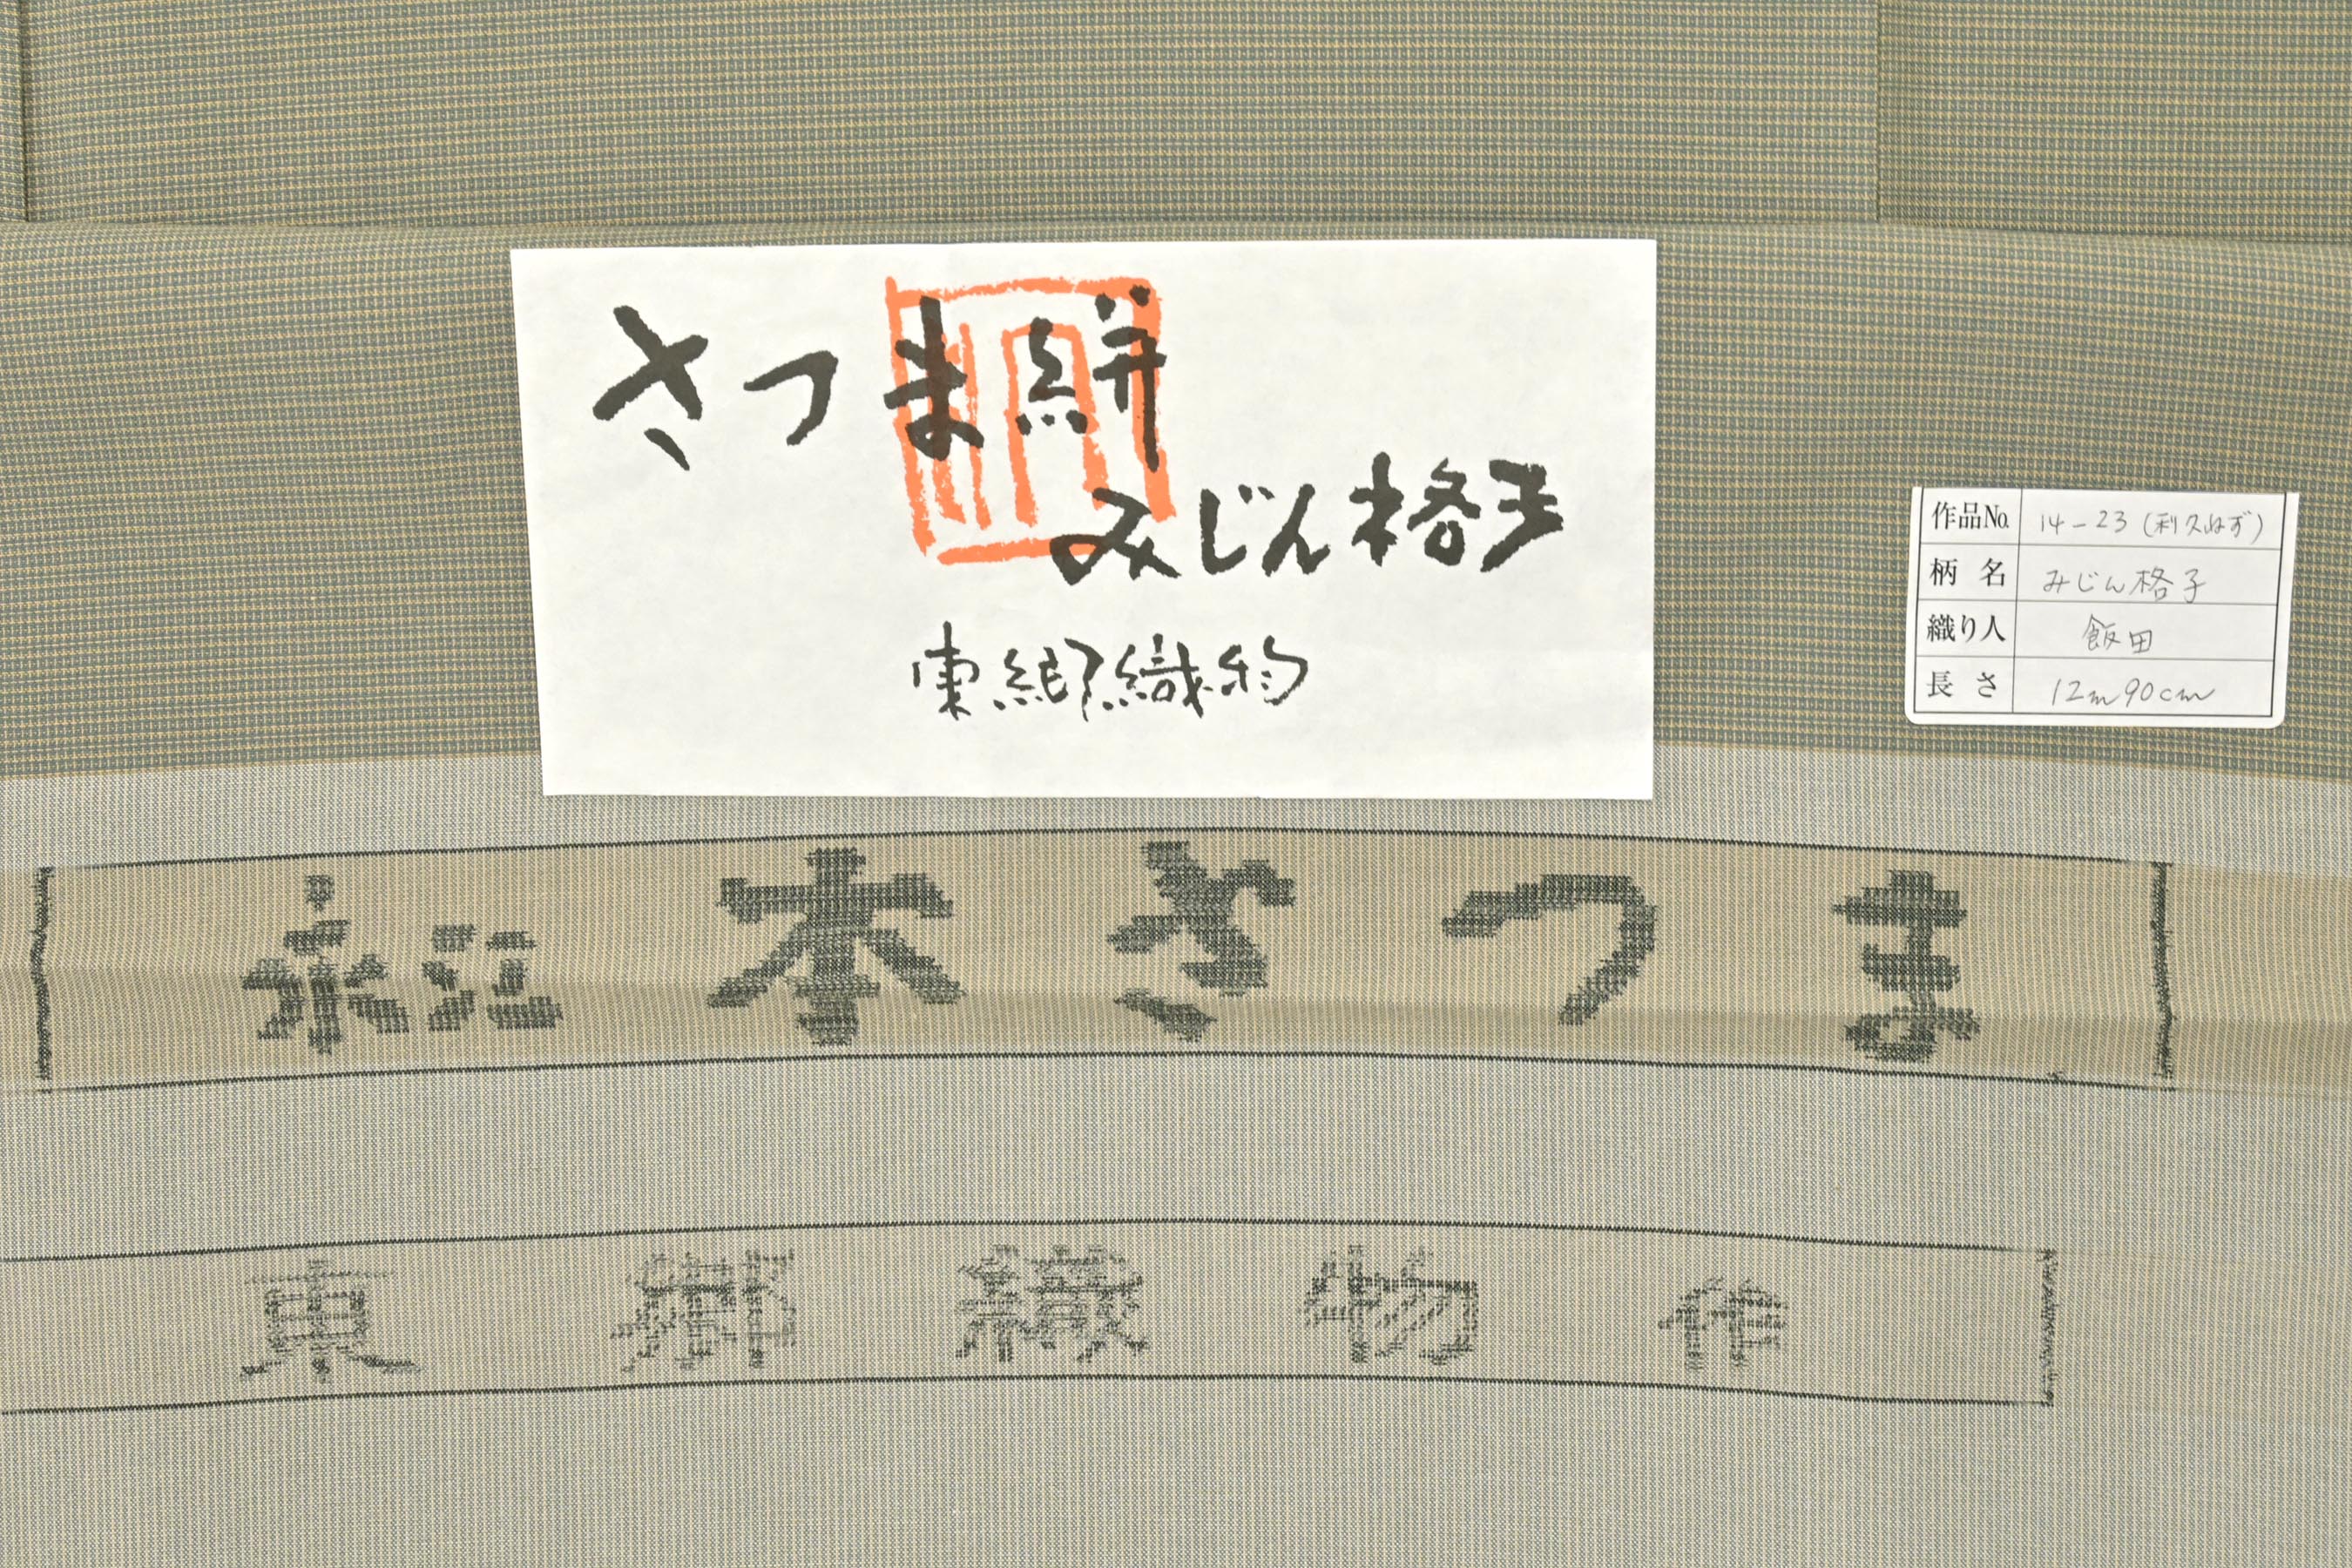 さつま絣
みじん格子
東郷織物
作品No. 14-23(利久ねず)
柄名 みじん格子
織り人 飯田
長さ 12m90cm
本さつま
東郷織物作